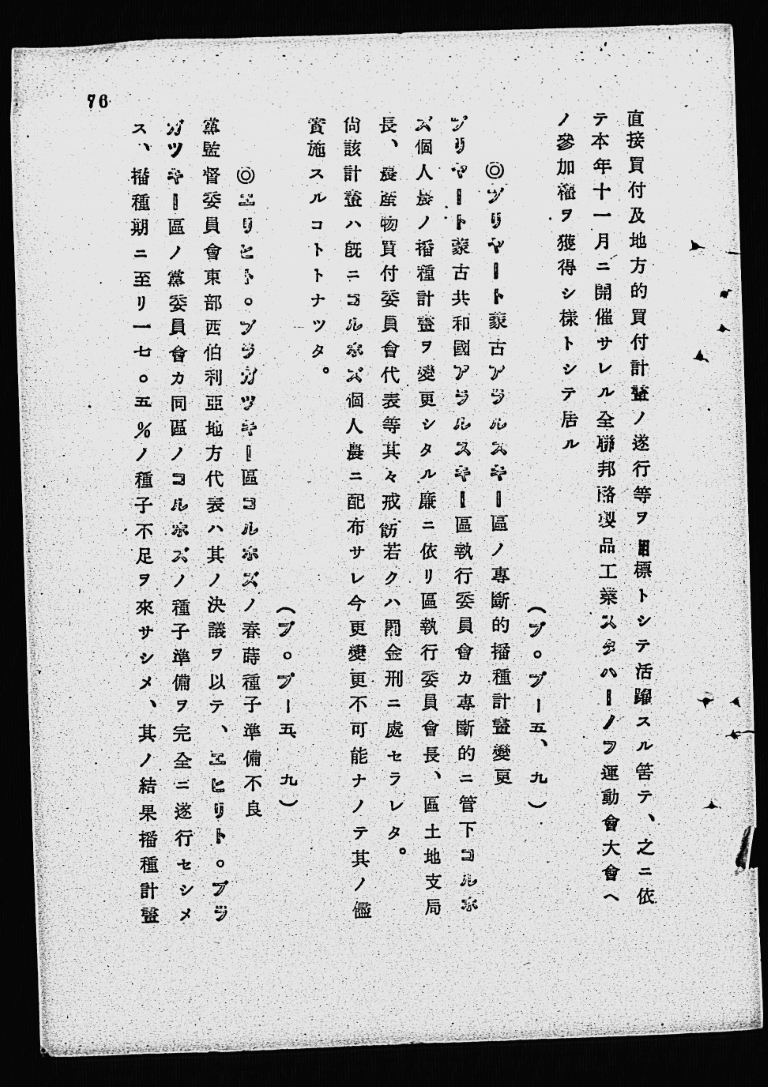 直接買付及地方的買付計畫ノ遂行等ヲ目標トシテ活躍スル筈テ、之ニ依
テ本年十一月ニ開催サレル全聯邦酪製品工業スタハーノフ運動會大會ヘ
ノ參加權ヲ獲得シ樣トシテ居ル
(プ。プー五、九)
◎ブリヤート蒙古アラルスキー區ノ專斷的播種計畫變更
ブリヤート蒙古共和國アラルスキー區執行委員會カ專斷的ニ管下コルホ
ズ個人農ノ播種計畫ヲ變更シタル廉ニ依リ區執行委員會長、區土地支局
長、農產物買付委員會代表等其々戒飭若クハ罰金刑ニ處セラレタ。
尙該計畫ハ旣ニコルホズ個人農ニ配布サレ今更變更不可能ナノテ其ノ儘
實施スルコトトナツタ。
(プ。プー五、九)
◎エリヒト。ブラガツキー區コルホズノ春蒔種子準備不良
黨監督委員會東部西伯利亞地方代表ハ其ノ決議ヲ以テ、エヒリト。ブラ
ガツキー區ノ黨委員會カ同區ノコルホズノ種子準備ヲ完全ニ遂行セシメ
ス、播種期ニ至リ一七。五%ノ種子不足ヲ來サシメ、其ノ結果播種計畫
76